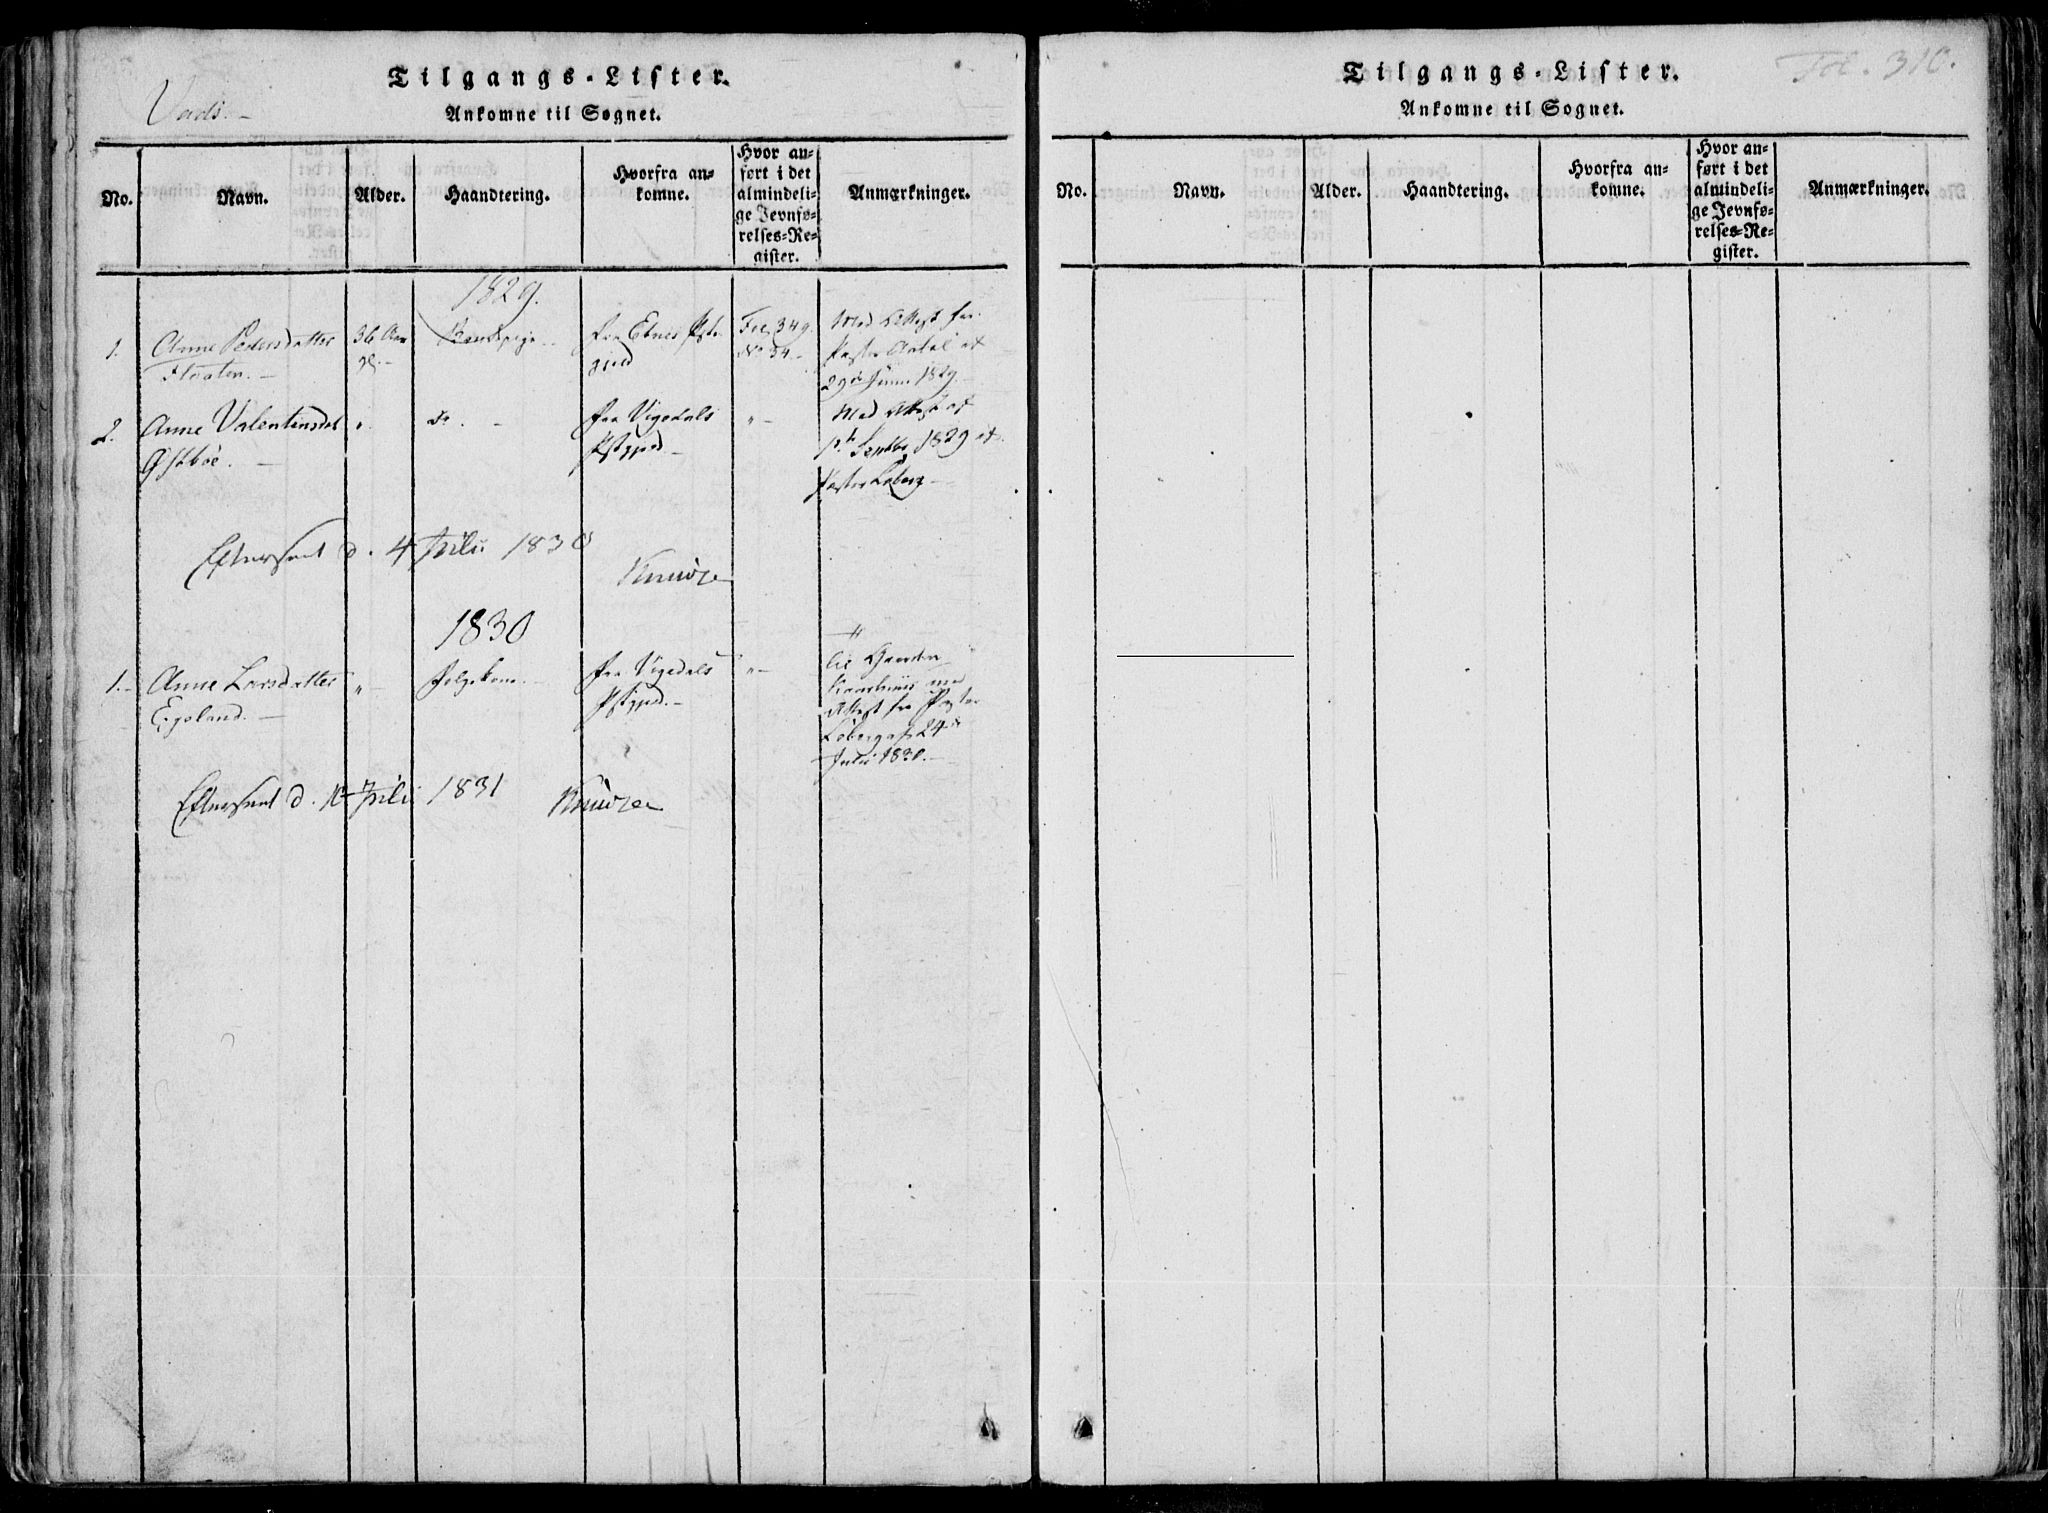 Tilgangs-Lister.
Vads.-
Ankomne til Sognet.
No.
Navn.
Alder.
Haandtering.
Hvorfra an-
komne.
Hvor an-
ført i det
almindeli-
ge Jevnfø-
relses-Re-
gister.
Anmærkninger.
1829.
1.
Anne Pedersdatter
36 Aar
fra Etnes Pste-
gjeld
Fol. 349.
No 34.-
Med Attest fra
Pastor
29de Juni 1829.
2.
Anne Valentinsdat
Østbøe.-
"
do. -
fra Vigedals
Pstgjed-
"-
Med Attest af
1ste Septbr 1829 af
Pastor Loberg-
Efterseet d. 4 Julii 1830
1830
1.-
Anne Larsdatter
Egeland.-
"-
Følgekone.-
fra Vigedals
Pstgjed.-
"-
til Gaarden
med
Attest fra Pastor
Loberg af 24de
Julii 1830.-
Efterseet d. Julii 1831
Tilgangs-Lister.
Fol. 310.
Ankomne til Sognet.
No.
Navn.
Alder.
Haandtering.
Hvorfra an-
komne.
Hvor an-
ført i det
almindeli-
ge Jevnfø-
relses-Re-
gister.
Anmærkninger.